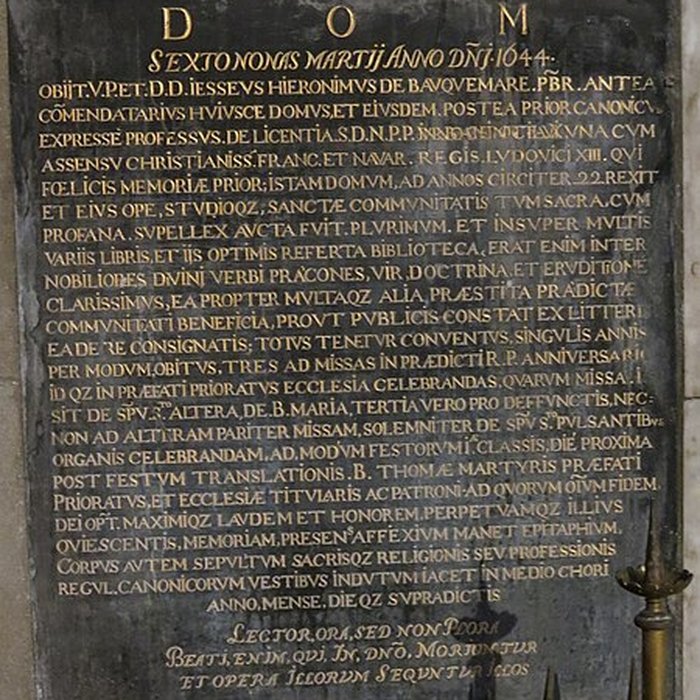 D O M
SEXTO NONAS MARTIJ ANNO DÑJ. 1644.
OBIJT. V. P. ET. D. D. IESSEVS HIERONIMVS DE BAVQVEMARE. PB̃R. ANTEA
CÕMENDATARIVS HVIVSCE DOMVS, ET EIVSDEM. POSTEA PRIOR CANONICVS
EXPRESSE PROFESSVS. DE LICENTIA. S. D. N. P. P. VNA CVM
ASSENSV CHRISTIANISS. FRANC. ET NAVAR. REGIS. LVDOVICI XIII. QVI
FŒLICIS MEMORIÆ PRIOR; ISTAM DOMVM, AD ANNOS CIRCITER 22 REXIT
ET EIVS OPE, STVDIOQZ, SANCTÆ COMMVNITATIS TVM SACRA, CVM
PROFANA. SVPELLEX AVCTA FVIT. PLVRIMVM. ET INSVPER MVLTIS
VARIIS LIBRIS, ET IJS OPTIMIS REFERTA BIBLIOTECA, ERAT ENIM INTER
NOBILIORES DVINJ VERBI PRÆCONES, VIR, DOCTRINA, ET ERVDITIONE
CLARISSIMVS, EA PROPTER MVLTAQZ ALIA, PRÆSTITA PRÆDICTÆ
COMMVNITATI BENEFICIA, PROVT PVBLICIS CONSTAT EX LITTERIS
EA DE RE CONSIGNATIS; TOTVS TENETVR CONVENTVS, SINGVLIS ANNIS
PER MODVM, OBITVS, TRES AD MISSAS IN PRÆDICTI R. P. ANNIVERSARIO
ID QZ IN PRÆFATI PRIORATVS ECCLESIA CELEBRANDAS, QVARVM MISSA. I
SIT DE SPṼ. Sᵗᵒ. ALTERA, DE. B. MARIA, TERTIA VERO PRO DEFFVNCTIS, NEC-
NON AD ALTERAM PARITER MISSAM, SOLEMNITER DE SPṼ Sᵗᵒ PVLSANTIBVS
ORGANIS CELEBRANDAM, AD, MODVM FESTORVM Iᵃ CLASSIS, DIE PROXIMA
POST FESTVM TRANSLATIONIS. B. THOMÆ MARTYRIS PRÆFATI
PRIORATVS, ET ECCLESIÆ TITVLARIS AC PATRONI. AD QVORVM OĨVM FIDEM.
DEI OPT. MAXIMIQZ LAVDEM ET HONOREM, PERPETVAMQZ ILLIVS
QVIESCENTIS, MEMORIAM, PRESENS AFFEXIVM MANET EPITAPHIVM,
CORPVS AVTEM SEPVLTVM SACRISQZ RELIGIONIS SEV PROFESSIONIS
REGVL. CANONICORVM VESTIBVS INDVTVM IACET IN MEDIO CHORI
ANNO, MENSE, DIE QZ SVPRADICTIS
LECTOR, ORA, SED NON PLORA
BEATI, ENIM, QVI, IN, DÑO, MORIVNTVR
ET OPERA ILLORVM SEQVNTVR ILLOS